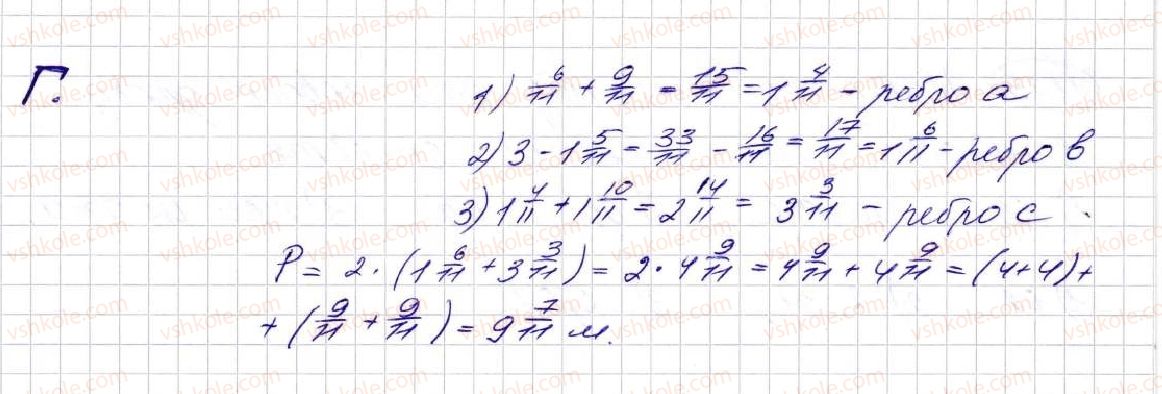 Г.
1) 6/11 + 9/11 = 15/11 = 1 4/11 - ребро а
2) 3 - 1 5/11 = 33/11 - 16/11 = 17/11 = 1 6/11 - ребро в
3) 1 4/11 + 1 10/11 = 2 14/11 = 3 3/11 - ребро с
P = 2 · (1 6/11 + 3 3/11) = 2 · 4 9/11 = 4 9/11 + 4 9/11 = (4+4) +
+ (9/11 + 9/11) = 9 7/11 м.
vshkole.com